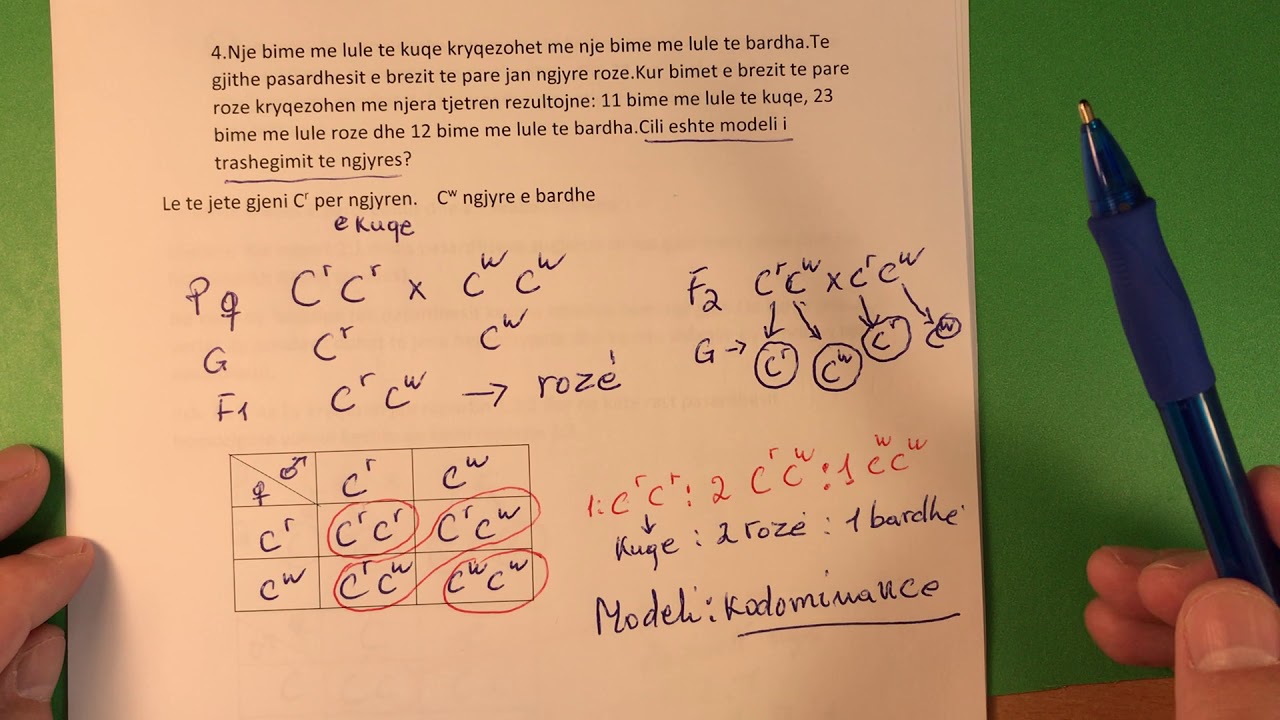 4.Nje bime me lule te kuqe kryqezohet me nje bime me lule te bardha.Te
gjithe pasardhesit e brezit te pare jan ngjyre roze.Kur bimet e brezit te pare
roze kryqezohen me njera tjetren rezultojne: 11 bime me lule te kuqe, 23
bime me lule roze dhe 12 bime me lule te bardha.Cili eshte modeli i
trashegimit te ngjyres?
Le te jete gjeni Cʳ per ngjyren. Cʷ ngjyre e bardhe
e Kuqe
P ♀ CʳCʳ x CʷCʷ
G Cʳ Cʷ
F1 CʳCʷ → rozë
F2 CʳCʷ x CʳCʷ
G → Cʳ Cʷ Cʳ Cʷ
♀ ♂ Cʳ Cʷ
Cʳ CʳCʳ CʳCʷ
Cʷ CʳCʷ CʷCʷ
1:CʳCʳ:2 CʳCʷ:1 CʷCʷ
Kuqe : 2 rozë : 1 bardhë
Modeli: Kodominance